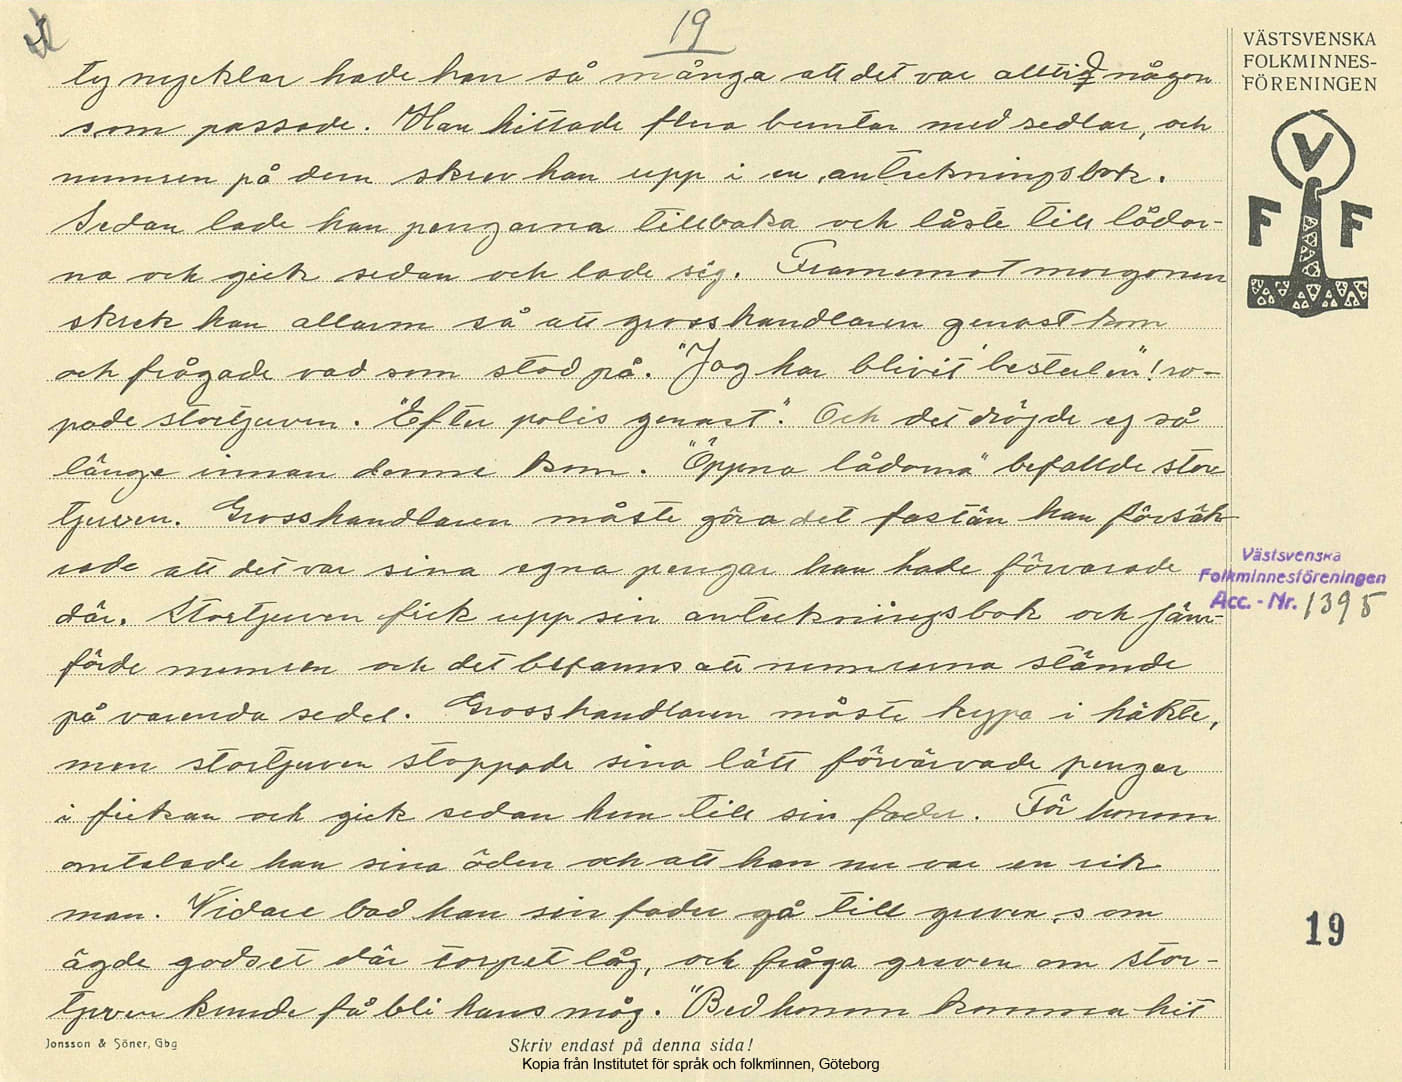 19
VÄSTSVENSKA
FOLKMINNES-
FÖRENINGEN
V
F F
ty nycklar hade han så många att det var alltid någon
som passade. Han hittade flera buntar med sedlar, och
numren på dem skrev han upp i en anteckningsbok.
Sedan lade han pengarna tillbaka och låste till lådor-
na och gick sedan och lade sig. Framemot morgonen
skrek han allarm så att grosshandlaren genast kom
och frågade vad som stod på. "Jag har blivit bestulen"! ro-
pade stortjuven. "Efter polis genast". Och det dröjde ej så
länge innan denne kom. "Öppna lådorna" befallde stor
tjuven. Grosshandlaren måste göra det fastän han försäk-
rade att det var sina egna pengar han hade förvarade
där. Stortjuven fick upp sin anteckningsbok och jäm-
förde numren och det befanns att numrena stämde
på varenda sedel. Grosshandlaren måste krypa i häkte,
men stortjuven stoppade sina lätt förvärvade pengar
i fickan och gick sedan hem till sin fader. För honom
omtalade han sina öden och att han nu var en rik
man. Vidare bad han sin fader gå till greven, som
ägde godset där torpet låg, och fråga greven om stor-
tjuven kunde få bli hans måg. "Bed honom komma hit
Västsvenska
Folkminnesföreningen
Acc. - Nr. 1395
19
Jonsson & Söner, Gbg
Skriv endast på denna sida!
Kopia från Institutet för språk och folkminnen, Göteborg